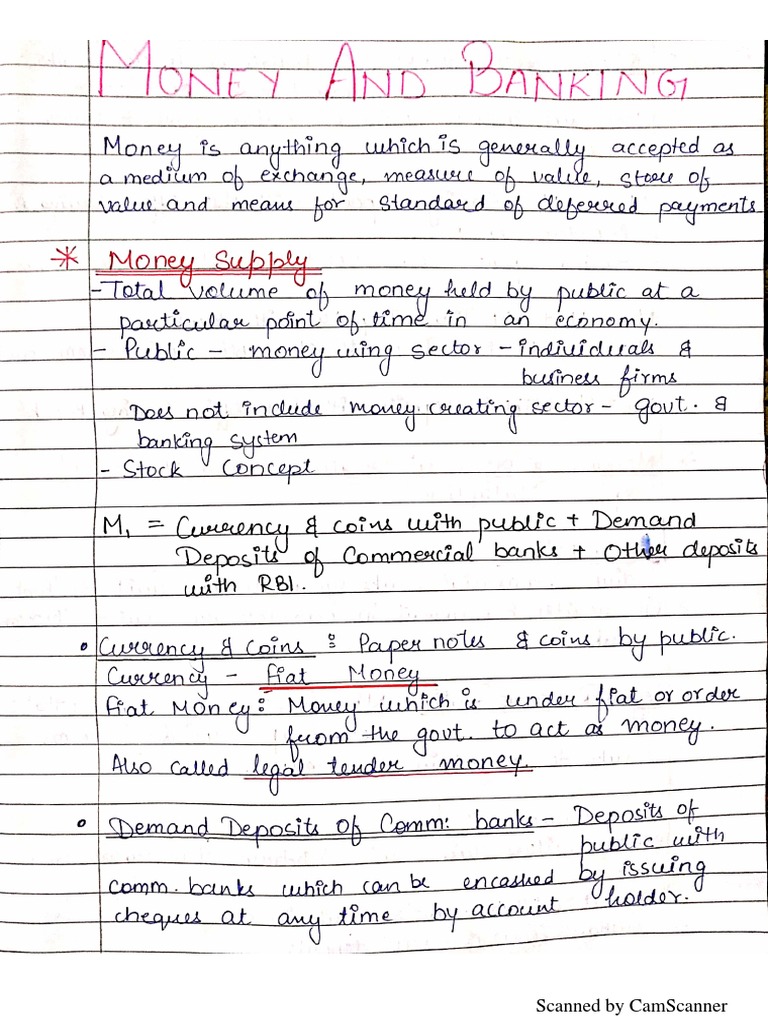 MONEY AND BANKING
Money is anything which is generally accepted as
a medium of exchange, measure of value, store of
value and means for standard of deferred payments
* Money Supply
- Total volume of money held by public at a
particular point of time in an economy.
- Public - money using sector - individuals &
business firms
Does not include money creating sector - govt. &
banking system
- Stock Concept
M₁ = Currency & coins with public + Demand
Deposits of Commercial banks + Other deposits
with RBI.
• Currency & coins : Paper notes & coins by public.
Currency - fiat Money
fiat Money : Money which is under fiat or order
from the govt. to act as money.
Also called legal tender money.
• Demand Deposits of Comm: banks - Deposits of
public with
comm. banks which can be encashed by issuing
cheques at any time by account holder.
Scanned by CamScanner